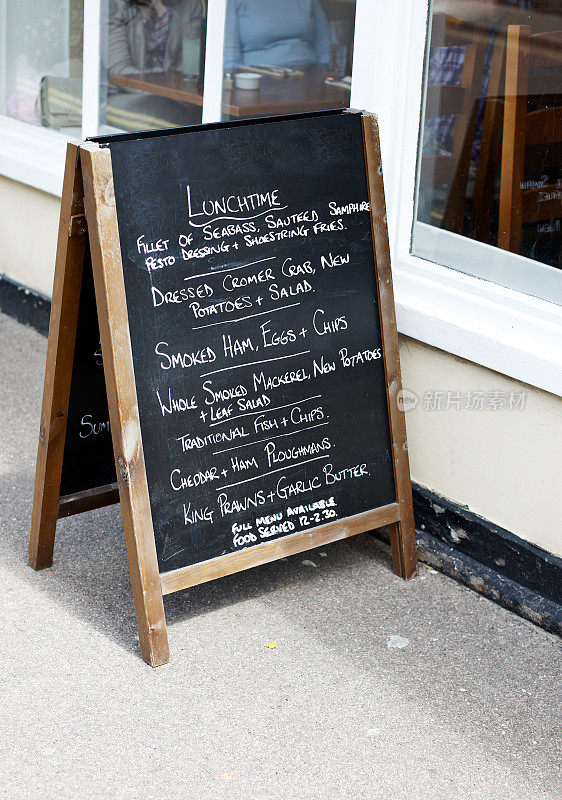 LUNCHTIME
FILLET OF SEABASS, SAUTEED SAMPHIRE
PESTO DRESSING + SHOESTRING FRIES.
DRESSED CROMER CRAB, NEW
POTATOES + SALAD.
SMOKED HAM, EGGS + CHIPS
WHOLE SMOKED MACKEREL, NEW POTATOES
+ LEAF SALAD
TRADITIONAL FISH + CHIPS.
CHEDDAR + HAM PLOUGHMANS.
KING PRAWNS + GARLIC BUTTER
FULL MENU AVAILABLE
FOOD SERVED 12-2.30.
iStock
视觉中国